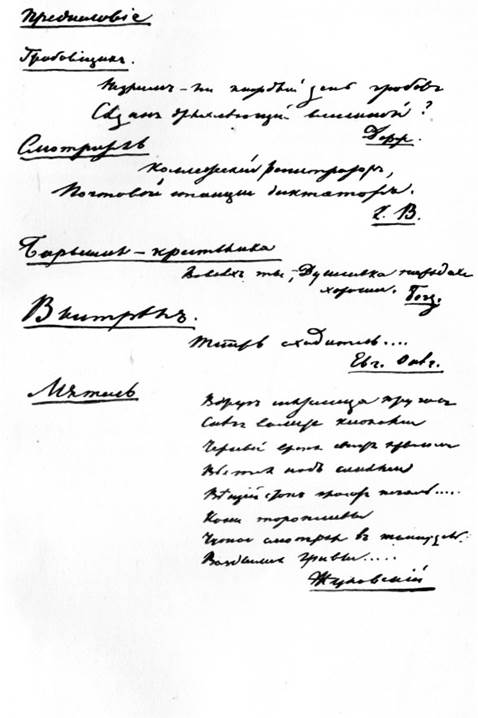 Предисловіе
Гробовщикъ.
зримъ-ли каждый день гробовъ
Сѣдинъ дряхлѣющей вселенной?
Держ.
Смотритель
Коллежский регистраторъ,
Почтовой станции диктаторъ.
К. В.
Барышня-крестьянка
Во всѣхъ ты, Душинька нарядахъ
хороша. Богд.
Выстрѣлъ.
Теперь сходитесь....
Евг. Онѣг.
Мятель
Вдругъ метелица кругомъ
Снѣгъ валитъ клоками
Черный вранъ крыломъ
Вьется надъ санями
Вѣщий стонъ печаль.....
Кони торопливы
Чутко смотрят в темну даль
гривы.....
Жуковский